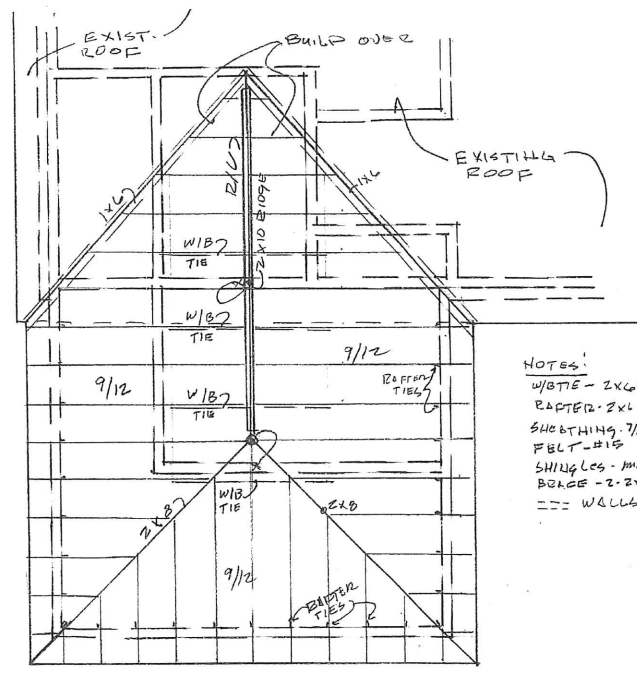 EXIST.
ROOF
BUILD OVER
EXISTING
ROOF
1x6
R/V
2x10 RIDGE
1x6
W/B
TIE
W/B
TIE
9/12
9/12
RAFTER
TIES
W/B
TIE
W/B
TIE
2x8
2x8
9/12
RAFTER
TIES
NOTES:
W/BTIE - 2x6
RAFTER - 2x6
SHEATHING - 7/
FELT - #15
SHINGLES -
BRACE - 2-2x
=== WALLS